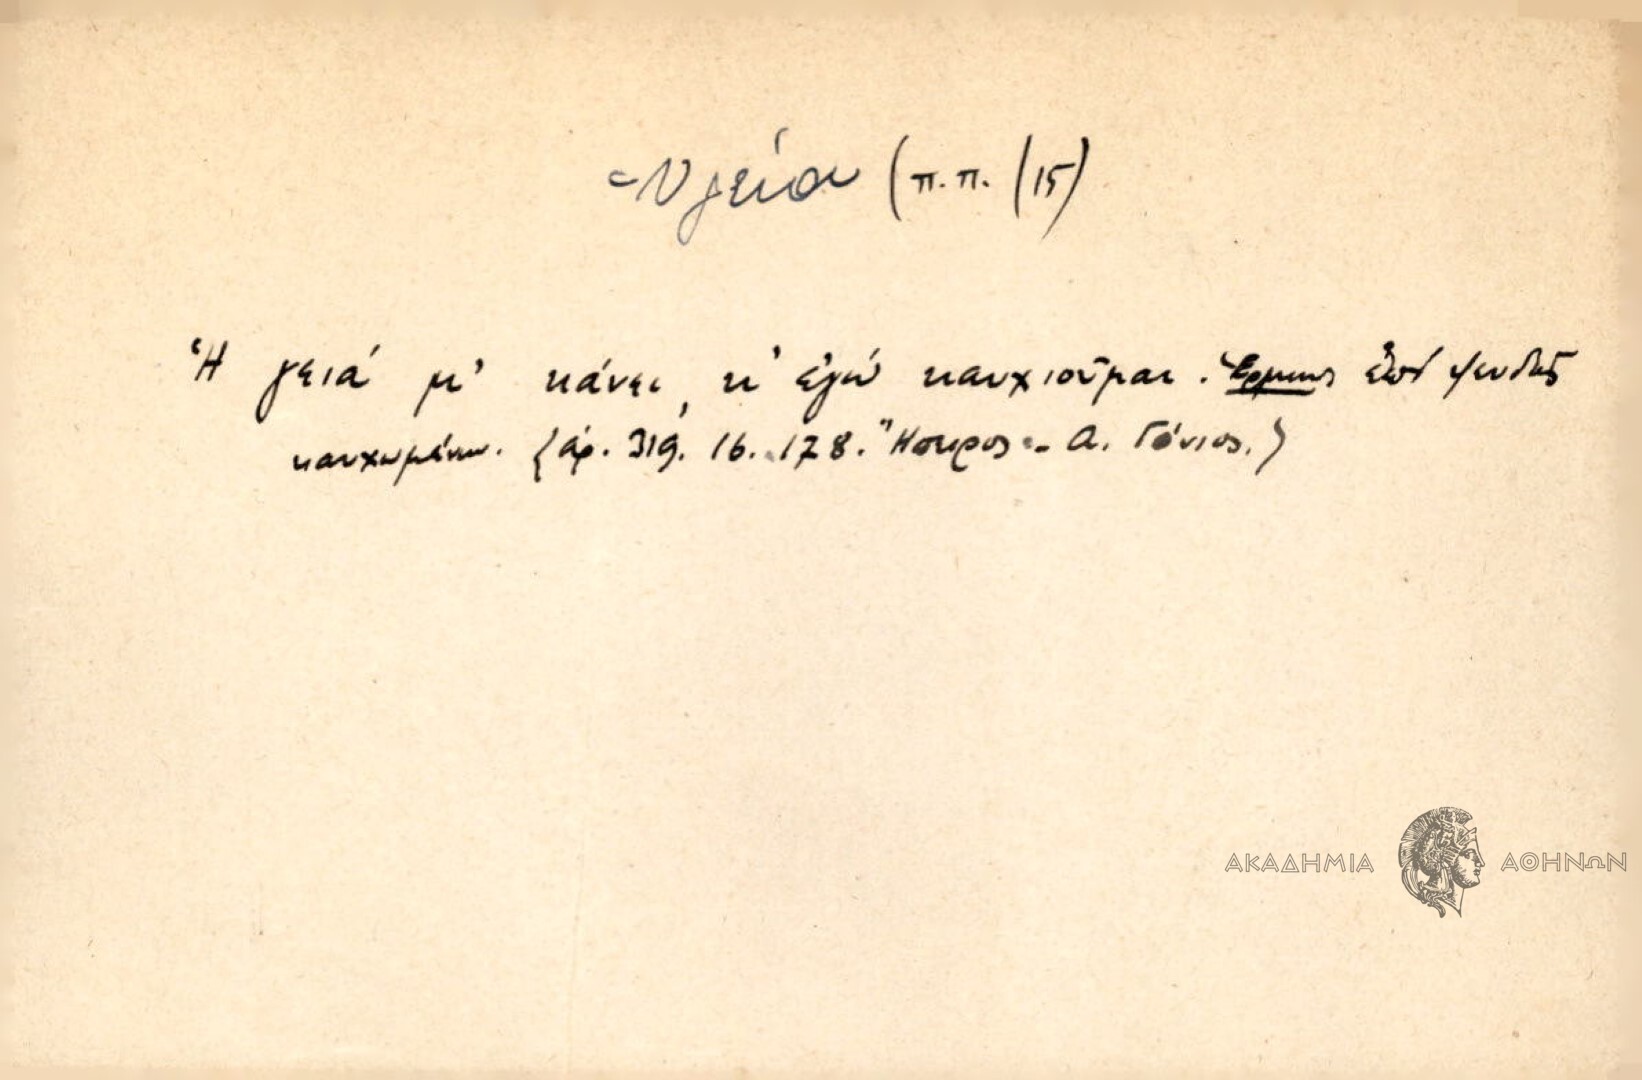 Ὑγεία (π.π. /15)
Ἡ γειά μ' κάνει, κ' ἐγώ καυχιοῦμαι. ἐπί ψευδῶς
καυχωμένων. (ἀρ. 319. 16. 178. Ἤπειρος - Α. Γόνιος.)
ΑΚΑΔΗΜΙΑ ΑΘΗΝΩΝ